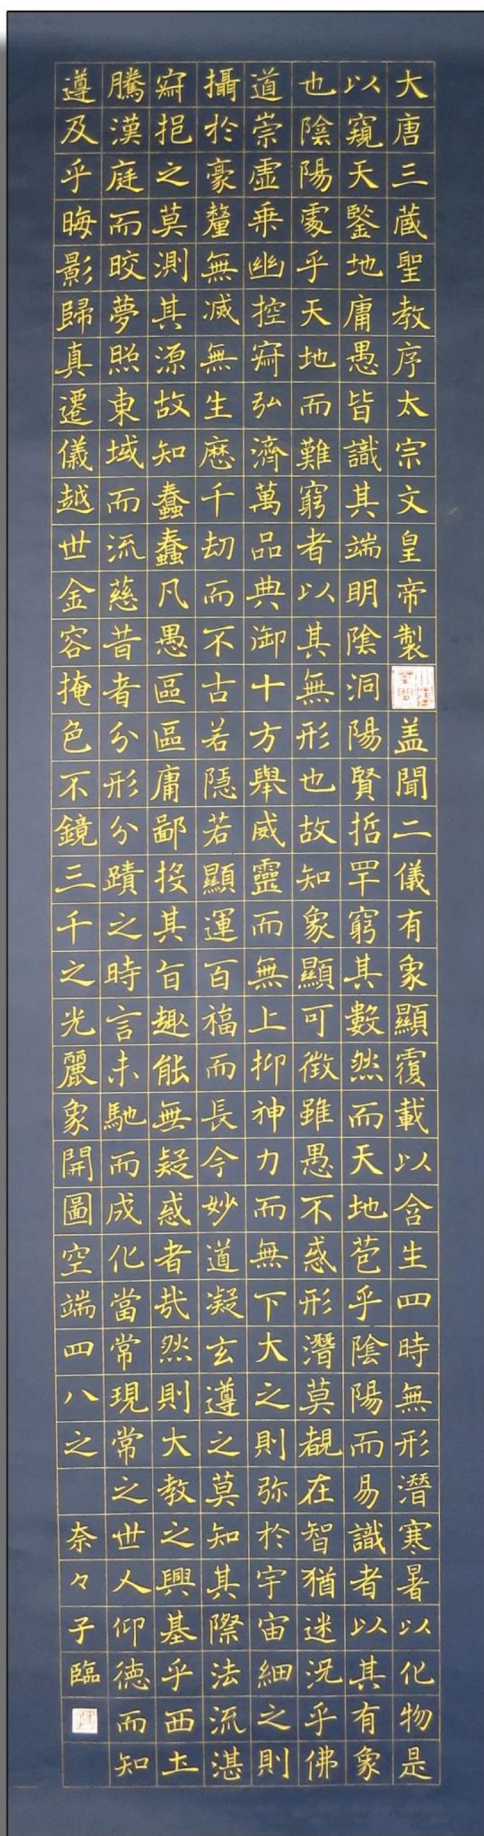 大唐三蔵聖教序太宗文皇帝製盖聞二儀有象顯覆載以含生四時無形潛寒暑以化物是
以窺天鑒地庸愚皆識其端明陰洞陽賢哲罕窮其數然而天地苞乎陰陽而易識者以其有象
也陰陽處乎天地而難窮者以其無形也故知象顯可徵雖愚不惑形潛莫覩在智猶迷況乎佛
道崇虚乗幽控寂弘濟萬品典御十方舉威靈而無上抑神力而無下大之則弥於宇宙細之則
攝於豪釐無滅無生歴千劫而不古若隱若顯運百福而長今妙道凝玄遵之莫知其際法流湛
寂挹之莫測其源故知蠢蠢凡愚區區庸鄙投其旨趣能無疑惑者哉然則大教之興基乎西土
騰漢庭而皎夢照東域而流慈昔者分形分蹟之時言未馳而成化當常現常之世人仰德而知
遵及乎晦影歸真遷儀越世金容掩色不鏡三千之光麗象開圖空端四八之
奈々子臨